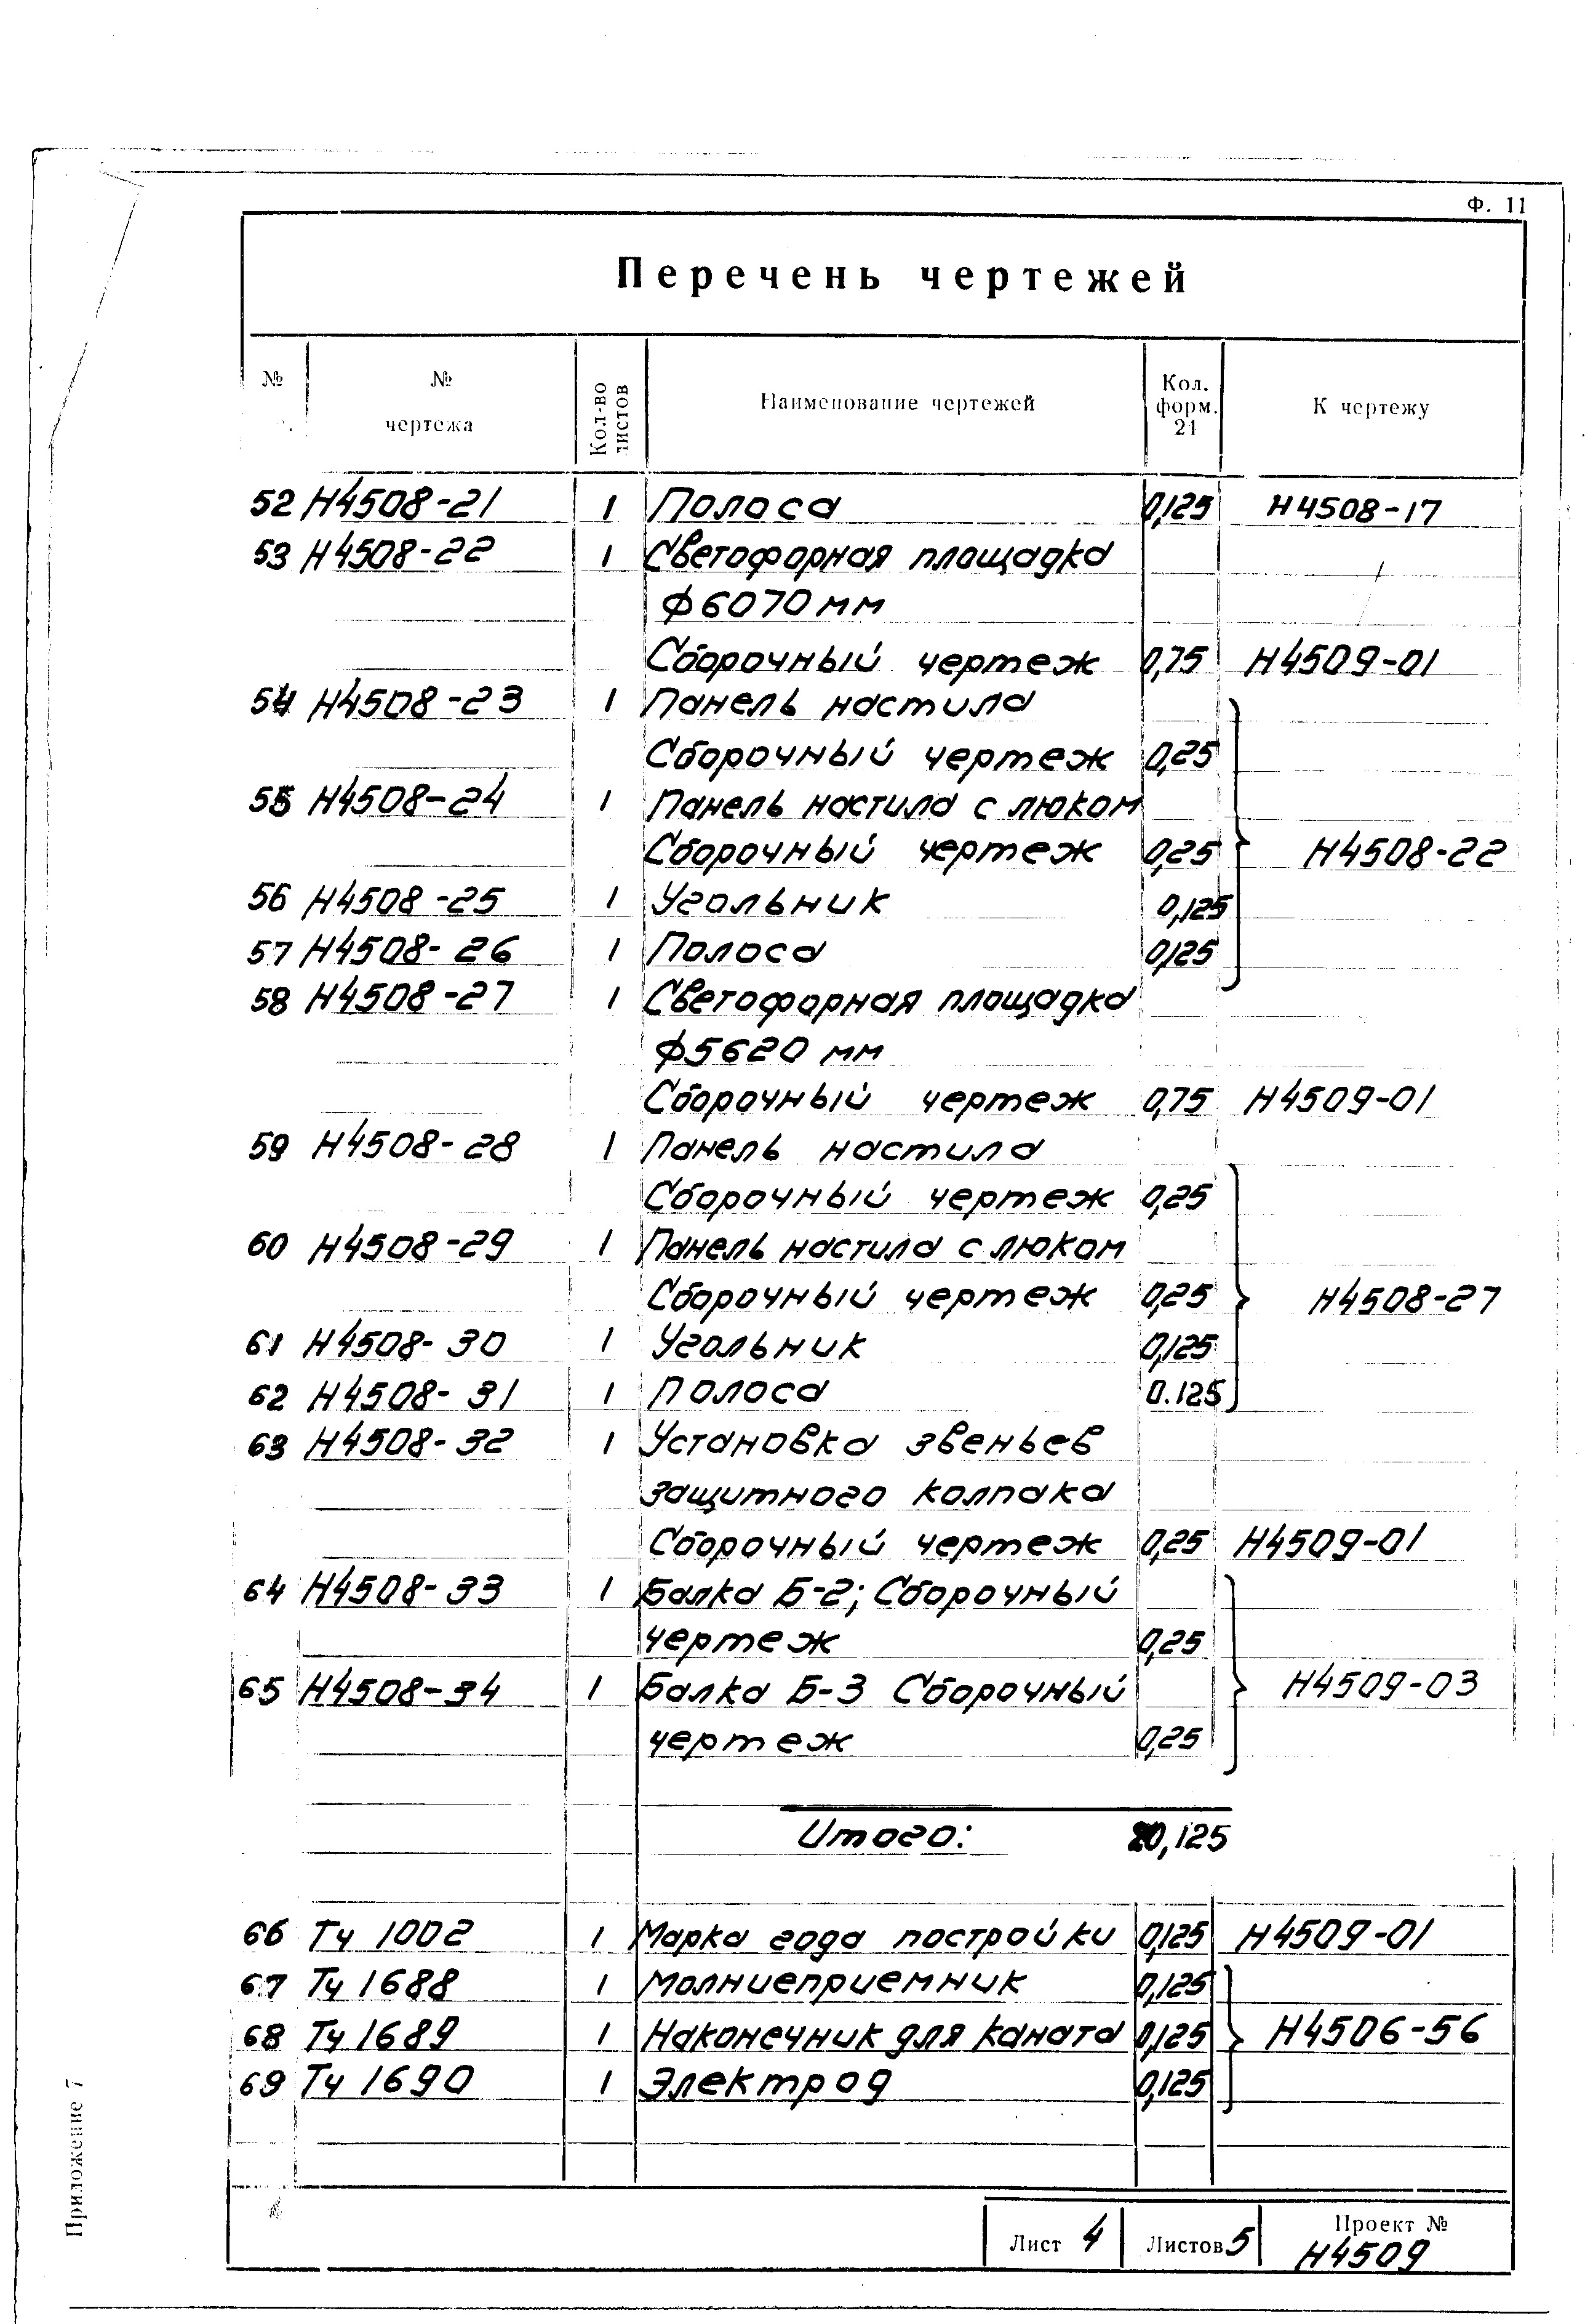 Ф. 11
Перечень чертежей
№ № чертежа Кол-во листов Наименование чертежей Кол. форм. 24 К чертежу
52 Н4508-21 1 Полоса 0,125 Н4508-17
53 Н4508-22 1 Светофорная площадка
ф6070мм
Сборочный чертеж 0,75 Н4509-01
54 Н4508-23 1 Панель настила
Сборочный чертеж 0,25
55 Н4508-24 1 Панель настила с люком
Сборочный чертеж 0,25 Н4508-22
56 Н4508-25 1 Угольник 0,125
57 Н4508-26 1 Полоса 0,125
58 Н4508-27 1 Светофорная площадка
ф5620 мм
Сборочный чертеж 0,75 Н4509-01
59 Н4508-28 1 Панель настила
Сборочный чертеж 0,25
60 Н4508-29 1 Панель настила с люком
Сборочный чертеж 0,25 Н4508-27
61 Н4508-30 1 Угольник 0,125
62 Н4508-31 1 Полоса 0.125
63 Н4508-32 1 Установка звеньев
защитного колпака
Сборочный чертеж 0,25 Н4509-01
64 Н4508-33 1 Балка Б-2; Сборочный
чертеж 0,25
65 Н4508-34 1 Балка Б-3 Сборочный Н4509-03
чертеж 0,25
Итого: 20,125
66 Тч 1002 1 Марка года постройки 0,125 Н4509-01
67 Тч 1688 1 Молниеприемник 0,125
68 Тч 1689 1 Наконечник для каната 0,125 Н4506-56
69 Тч 1690 1 Электрод 0,125
Приложение 7
Лист 4 Листов 5 Проект №
Н4509